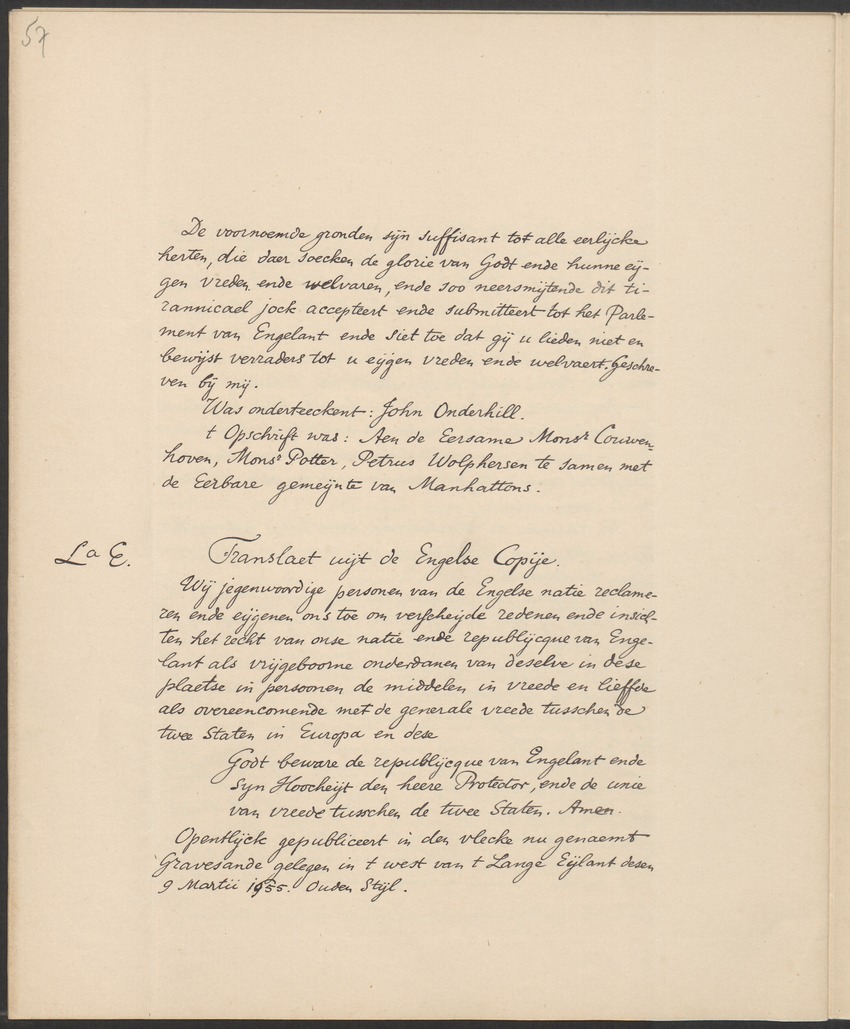 57
De voornoemde gronden sijn suffisant tot alle eerlijcke
herten, die daer soecken de glorie van Godt ende hunne eij-
gen vreden ende welvaren, ende soo neersmijtende dit ti-
rannicael jock accepteert ende submitteert tot het Parle-
ment van Engelant ende siet toe dat gij u lieden niet en
bewijst verraders tot u eijgen vreden ende welvaert. Geschre-
ven bij mij.
Was onderteeckent: John Onderhill.
t Opschrift was: Aen de Eersame Monsr Couwen=
hoven, Monsr Potter, Petrus Wolphersen te samen met
de Eerbare gemeijnte van Manhattons.
La E.
Translaet uijt de Engelse Copije.
Wij jegenwoordige personen van de Engelse natie reclame-
ren ende eijgenen ons toe om verscheijde redenen ende insich-
ten het recht van onse natie ende republijcque van Enge-
lant als vrijgeboorne onderdanen van deselve in dese
plaetse in persoonen de middelen in vreede en lieffde
als overeencomende met de generale vreede tusschen de
twee Staten in Europa en dese
Godt beware de republijcque van Engelant ende
Sijn Hoocheijt den heere Protector, ende de unie
van vreede tusschen de twee Staten. Amen.
Opentlijck gepubliceert in den vlecke nu genaemt
Gravesande gelegen in t west van t Lange Eijlant desen
9 Martii 1655. Ouden Stijl.